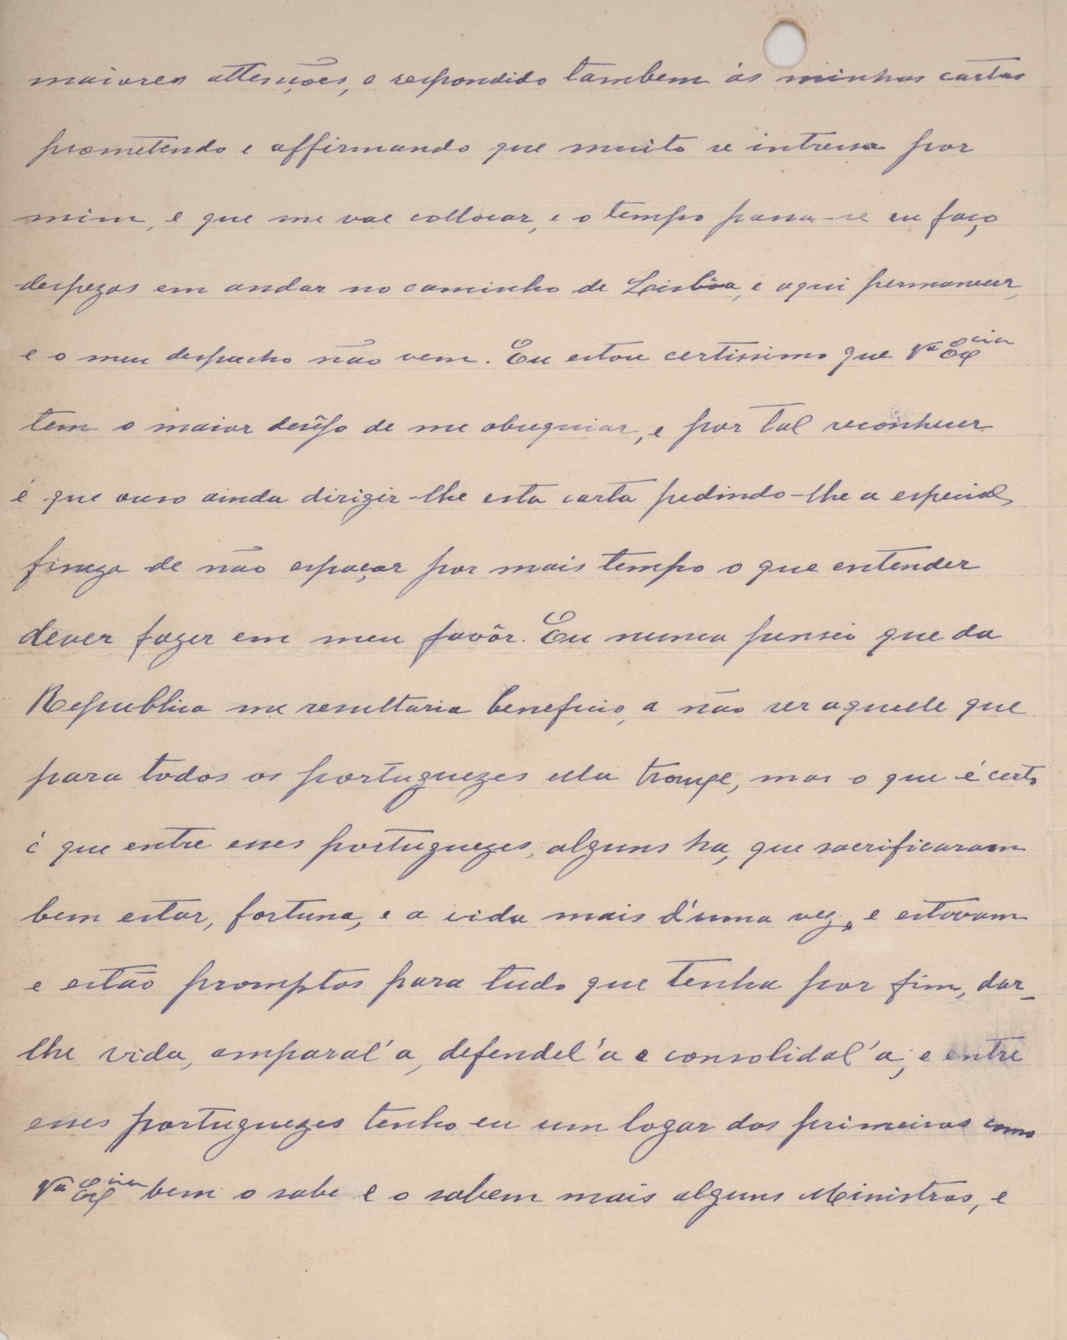 maiores attenções, e respondido tambem ás minhas cartas
promettendo e affirmando que muito se intressa por
mim, e que me vae collocar, e o tempo passa-se eu faço
despezas em andar no caminho de Lisbôa, e aqui permanecer,
e o meu despacho não vem. Eu estou certissimo que Vª Exᶜⁱᵃ
tem o maior desejo de me obsequiar, e por tal reconhecer
é que ouso ainda dirigir-lhe esta carta pedindo-lhe a especial
fineza de não espaçar por mais tempo o que entender
dever fazer em meu favôr. Eu nunca pensei que da
Republica me resultaria beneficio, a não ser aquelle que
para todos os portuguezes ella trouxe, mas o que é certo
é que entre esses portuguezes, alguns ha, que sacrificaram
bem estar, fortuna, e a vida mais d'uma vez, e estavam
e estão promptos para tudo que tenha por fim, dar-
lhe vida, amparal'a, defendel'a e consolidal'a, e entre
esses portuguezes tenho eu um logar dos primeiros como
Vª Exᶜⁱᵃ bem o sabe e o sabem mais alguns Ministros, e